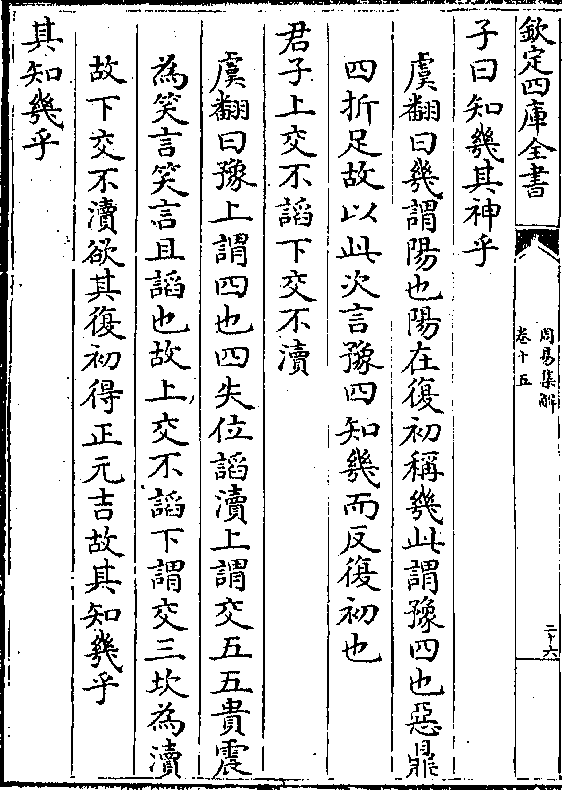 欽定四庫全書
周易集解
卷十五
二十六
子曰知幾其神乎
虞翻曰幾謂陽也陽在復初稱幾此謂豫四也惡鼎
四折足故以此次言豫四知幾而反復初也
君子上交不謟下交不瀆
虞翻曰豫上謂四也四失位謟瀆上謂交五五貴震
為笑言笑言且謟也故上交不謟下謂交三坎為瀆
故下交不瀆欲其復初得正元吉故其知幾乎
其知幾乎